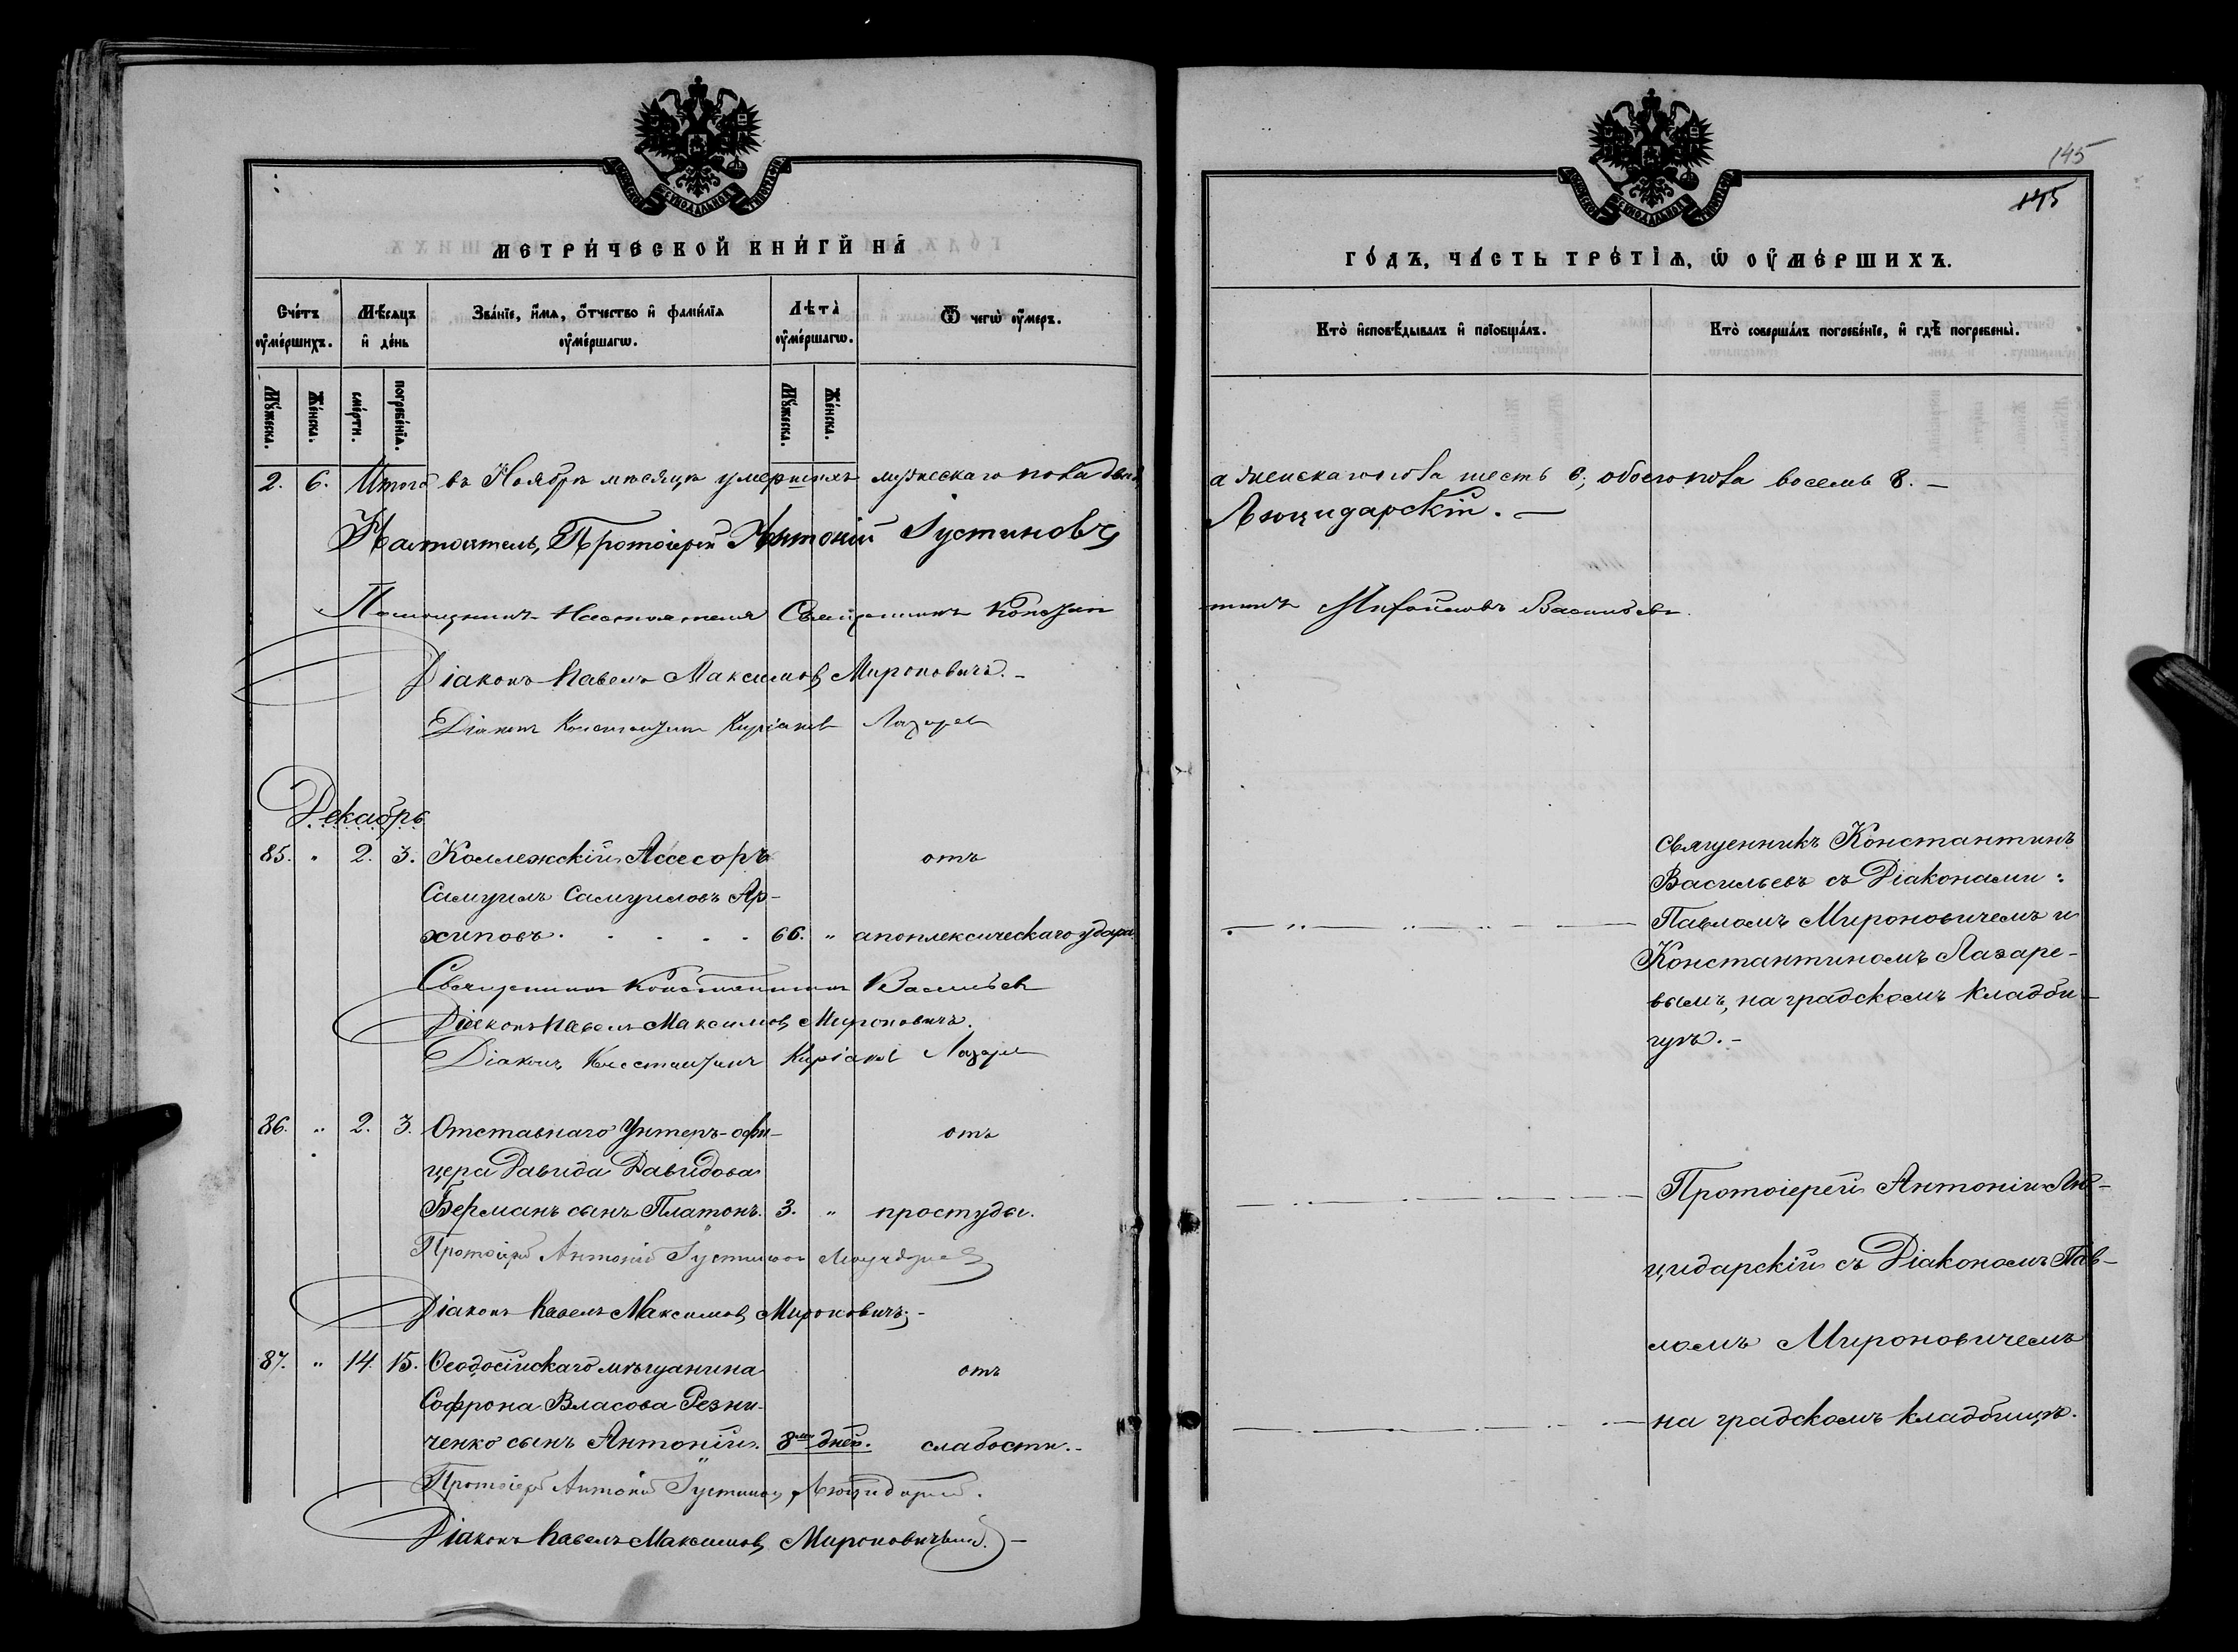 145
145
МЕТРИЧЕСКОЙ КНИГИ НА
ГОДЪ, ЧАСТЬ ТРЕТІЯ, Ѡ ОУМЕРШИХЪ.
Счетъ оумершихъ.
Мѣсяцъ и день
Званіе, имя, отчество и фамилія оумершагѡ.
Лѣта оумершагѡ.
Ѿ чегѡ оумеръ.
Кто исповѣдывалъ и пріобщалъ.
Кто совершалъ погребеніе, и гдѣ погребены.
Мужеска.
Женска.
смерти.
погребенія.
Мужеска.
Женска.
2. 6. Итого въ Ноябрѣ мѣсяцѣ умершихъ мужескаго пола два, а женскаго пола шесть 6; обоего пола восемь 8. —
Настоятель, Протоіерей Антоній Іустиновъ Люцидарскій. —
Помощникъ Настоятеля Священникъ Константинъ Михайловъ Васильевъ
Діаконъ Павелъ Максимовъ Мироновичъ. -
Діаконъ Константинъ Киріаковъ Лазаревъ
Декабрь
85. " 2. 3. Коллежскій Ассесоръ
Самуилъ Самуиловъ Ар-
хиповъ. . . . . . 66. "
отъ
апоплексическаго удара
Священникъ Константинъ
Васильевъ съ Діаконами:
Павломъ Мироновичемъ и
Константиномъ Лазаре-
вымъ, на градскомъ кладби-
щѣ. -
Священникъ Константинъ Васильевъ
Діаконъ Павелъ Максимовъ Мироновичъ.
Діаконъ Константинъ Киріаковъ Лазаревъ
86. " 2. 3. Отставнаго Унтеръ-офи-
цера Давида Давидова
Берманъ сынъ Платонъ. 3. "
отъ
простуды.
Протоіерей Антоній Лю-
цидарскій съ Діакономъ Пав-
ломъ Мироновичемъ
на градскомъ кладбищѣ.
Протоіерей Антоній Іустиновъ
Діаконъ Павелъ Максимовъ Мироновичъ. -
87. " 14. 15. Ѳеодосійскаго мѣщанина
Софрона Власова Резни-
ченко сынъ Антоній. 8ми дней.
отъ
слабости. -
Протоіерей Антоній Іустиновъ Люцидарскій.
Діаконъ Павелъ Максимовъ Мироновичъ —